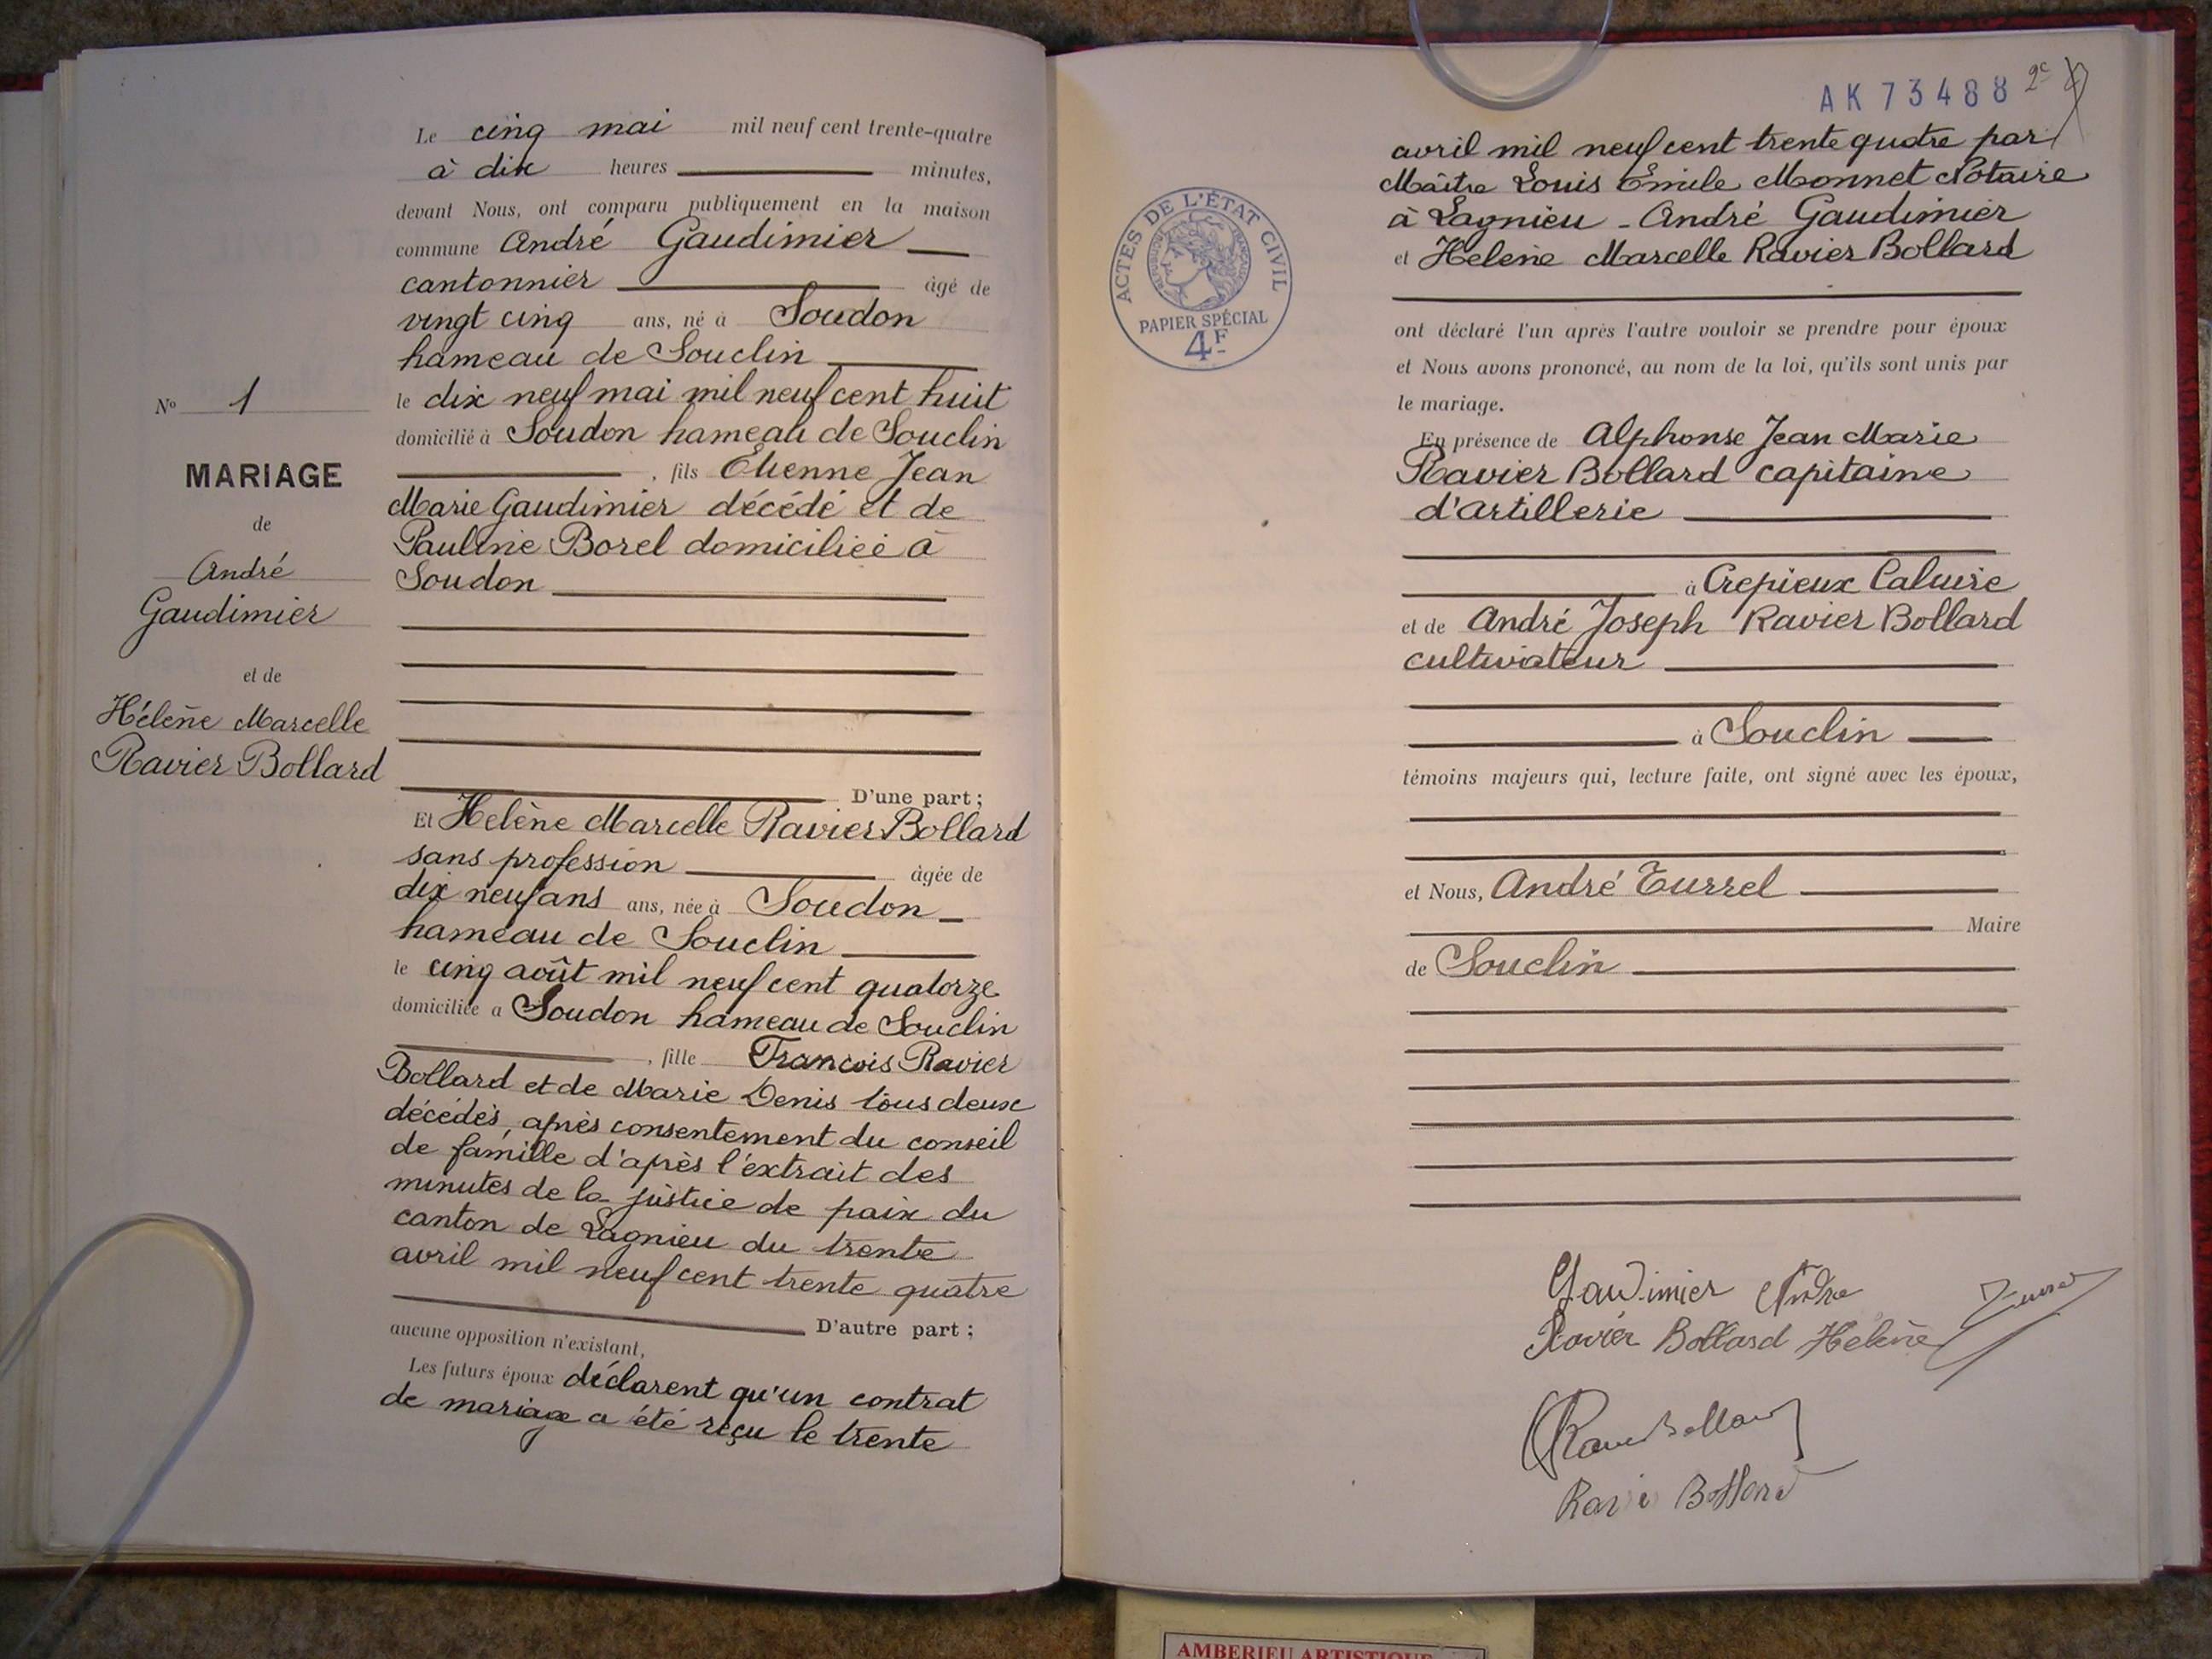 N° 1
MARIAGE
de
André
Gaudimier
et de
Hélène Marcelle
Ravier Bollard
Le cinq mai mil neuf cent trente-quatre
à dix heures minutes,
devant Nous, ont comparu publiquement en la maison
commune André Gaudimier
cantonnier âgé de
vingt cinq ans, né à Soudon
hameau de Souclin
le dix neuf mai mil neuf cent huit
domicilié à Soudon hameau de Souclin
, fils Etienne Jean
Marie Gaudimier décédé et de
Pauline Borel domiciliée à
Soudon
D'une part ;
Et Helène Marcelle Ravier Bollard
sans profession âgée de
dix neuf ans ans, née à Soudon
hameau de Souclin
le cinq août mil neuf cent quatorze
domiciliée a Soudon hameau de Souclin
, fille Francois Ravier
Bollard et de Marie Denis tous deux
décédés, après consentement du conseil
de famille d'après l'extrait des
minutes de la justice de paix du
canton de Lagnieu du trente
avril mil neuf cent trente quatre
D'autre part ;
aucune opposition n'existant,
Les futurs époux déclarent qu'un contrat
de mariage a été reçu le trente
AK 73488 2e
avril mil neuf cent trente quatre par
Maître Louis Emile Monnet Notaire
à Lagnieu - André Gaudimier
et Helène Marcelle Ravier Bollard
ACTES DE L'ÉTAT CIVIL
RÉPUBLIQUE FRANÇAISE
PAPIER SPÉCIAL
4F
ont déclaré l'un après l'autre vouloir se prendre pour époux
et Nous avons prononcé, au nom de la loi, qu'ils sont unis par
le mariage.
En présence de Alphonse Jean Marie
Ravier Bollard capitaine
d'artillerie
à Crepieux Caluire
et de André Joseph Ravier Bollard
cultivateur
à Souclin
témoins majeurs qui, lecture faite, ont signé avec les époux,
et Nous, André Turrel
Maire
de Souclin
Gaudimier André
Turrel
Ravier Bollard Helène
Ravier Bollard
Ravier Bollard
AMBERIEU ARTISTIQUE